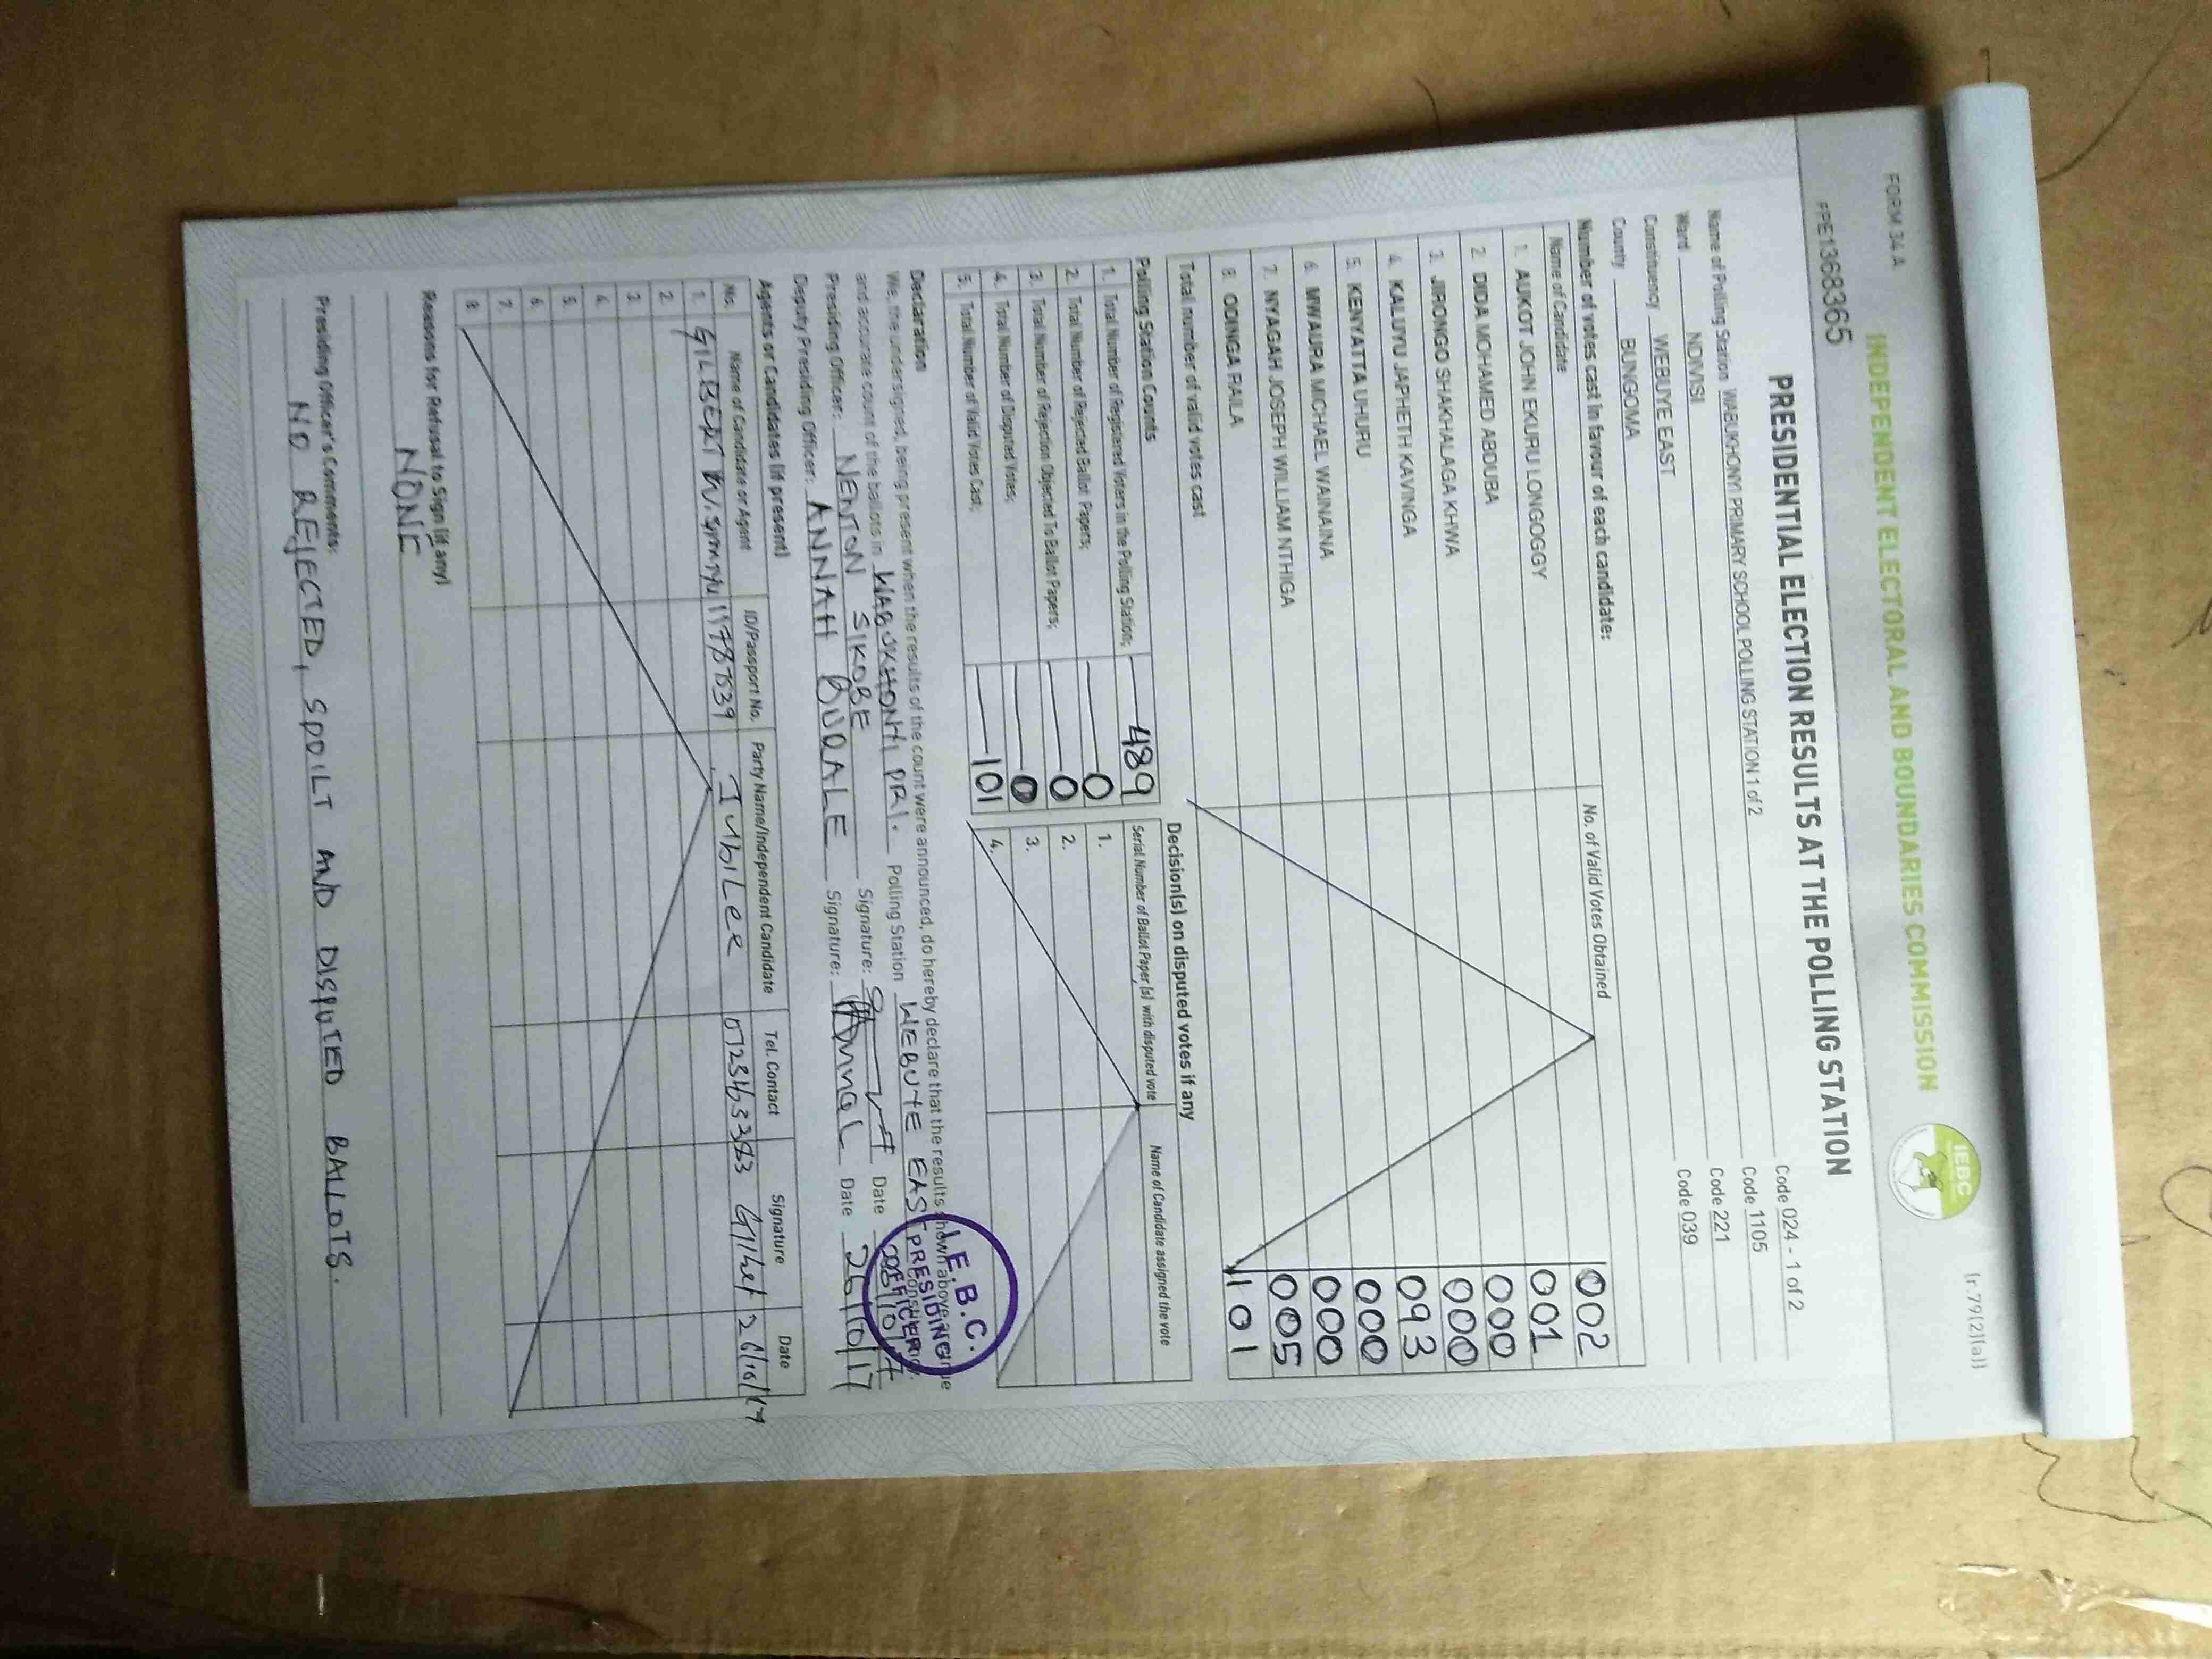 FORM 34 A
(r.79(2)(a))
INDEPENDENT ELECTORAL AND BOUNDARIES COMMISSION
IEBC
#PE1368365
PRESIDENTIAL ELECTION RESULTS AT THE POLLING STATION
Name of Polling Station WABUKHONYI PRIMARY SCHOOL POLLING STATION 1 of 2 Code 024 - 1 of 2
Ward NDIVISI Code 1105
Constituency WEBUYE EAST Code 221
County BUNGOMA Code 039
Number of votes cast in favour of each candidate:
Name of Candidate No. of Valid Votes Obtained
1. AUKOT JOHN EKURU LONGOGGY 002
2. DIDA MOHAMED ABDUBA 001
3. JIRONGO SHAKHALAGA KHWA 000
4. KALUYU JAPHETH KAVINGA 000
5. KENYATTA UHURU 093
6. MWAURA MICHAEL WAINAINA 000
7. NYAGAH JOSEPH WILLIAM NTHIGA 000
8. ODINGA RAILA 005
Total number of valid votes cast 101
Polling Station Counts
1. Total Number of Registered Voters in the Polling Station; 489
2. Total Number of Rejected Ballot Papers; 0
3. Total Number of Rejection Objected To Ballot Papers; 0
4. Total Number of Disputed Votes; 0
5. Total Number of Valid Votes Cast; 101
Decision(s) on disputed votes if any
Serial Number of Ballot Paper (s) with disputed vote Name of Candidate assigned the vote
1.
2.
3.
4.
Declaration
We, the undersigned, being present when the results of the count were announced, do hereby declare that the results shown above
and accurate count of the ballots in WABUKHONYI PRI. Polling Station WEBUYE EAST
Presiding Officer: NEWTON SIKOBE Signature: Date
Deputy Presiding Officer: ANNAH BUDALE Signature: Date 26/10/17
I.E.B.C.
PRESIDING
OFFICER
Agents or Candidates (if present)
No. Name of Candidate or Agent ID/Passport No. Party Name/Independent Candidate Tel. Contact Signature Date
1. GILBERT Jubilee 26/10/17
2.
3.
4.
5.
6.
7.
8.
Reasons for Refusal to Sign (if any)
NONE
Presiding Officer's Comments:
NO REJECTED, SPOILT AND DISPUTED BALLOTS.